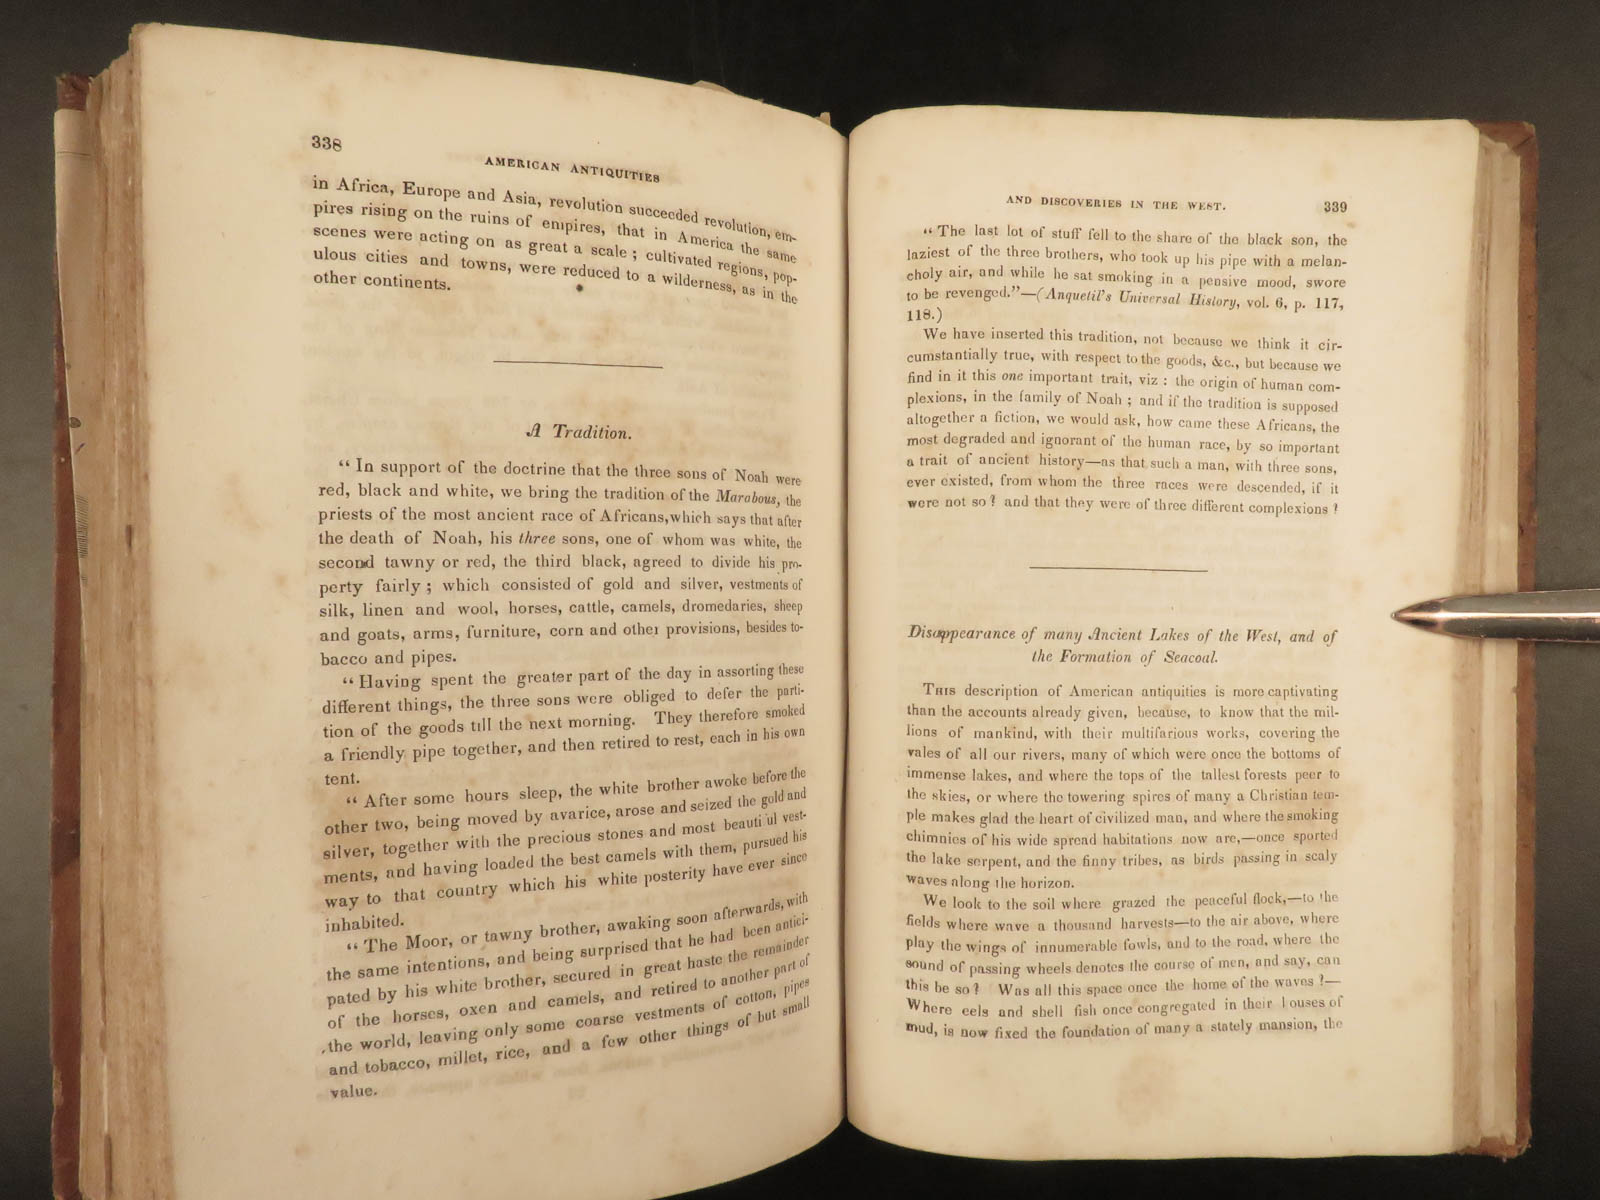 338
AMERICAN ANTIQUITIES
in Africa, Europe and Asia, revolution succeeded revolution, em-
pires rising on the ruins of empires, that in America the same
scenes were acting on as great a scale ; cultivated regions, pop-
ulous cities and towns, were reduced to a wilderness, as in the
other continents.
A Tradition.
“ In support of the doctrine that the three sons of Noah were
red, black and white, we bring the tradition of the Marabous, the
priests of the most ancient race of Africans, which says that after
the death of Noah, his three sons, one of whom was white, the
second tawny or red, the third black, agreed to divide his pro-
perty fairly ; which consisted of gold and silver, vestments of
silk, linen and wool, horses, cattle, camels, dromedaries, sheep
and goats, arms, furniture, corn and other provisions, besides to-
bacco and pipes.
“ Having spent the greater part of the day in assorting these
different things, the three sons were obliged to defer the parti-
tion of the goods till the next morning. They therefore smoked
a friendly pipe together, and then retired to rest, each in his own
tent.
“ After some hours sleep, the white brother awoke before the
other two, being moved by avarice, arose and seized the gold and
silver, together with the precious stones and most beauti ul vest-
ments, and having loaded the best camels with them, pursued his
way to that country which his white posterity have ever since
inhabited.
“ The Moor, or tawny brother, awaking soon afterwards, with
the same intentions, and being surprised that he had been antici-
pated by his white brother, secured in great haste the remainder
of the horses, oxen and camels, and retired to another part of
the world, leaving only some coarse vestments of cotton, pipes
and tobacco, millet, rice, and a few other things of but small
value.
AND DISCOVERIES IN THE WEST.
339
“ The last lot of stuff fell to the share of the black son, the
laziest of the three brothers, who took up his pipe with a melan-
choly air, and while he sat smoking in a pensive mood, swore
to be revenged.”—(Anquetil's Universal History, vol. 6, p. 117,
118.)
We have inserted this tradition, not because we think it cir-
cumstantially true, with respect to the goods, &c., but because we
find in it this one important trait, viz : the origin of human com-
plexions, in the family of Noah ; and if the tradition is supposed
altogether a fiction, we would ask, how came these Africans, the
most degraded and ignorant of the human race, by so important
a trait of ancient history—as that such a man, with three sons,
ever existed, from whom the three races were descended, if it
were not so ? and that they were of three different complexions ?
Disappearance of many Ancient Lakes of the West, and of
the Formation of Seacoal.
THIS description of American antiquities is more captivating
than the accounts already given, because, to know that the mil-
lions of mankind, with their multifarious works, covering the
vales of all our rivers, many of which were once the bottoms of
immense lakes, and where the tops of the tallest forests peer to
the skies, or where the towering spires of many a Christian tem-
ple makes glad the heart of civilized man, and where the smoking
chimnies of his wide spread habitations now are,—once sported
the lake serpent, and the finny tribes, as birds passing in scaly
waves along the horizon.
We look to the soil where grazed the peaceful flock,—to the
fields where wave a thousand harvests—to the air above, where
play the wings of innumerable fowls, and to the road, where the
sound of passing wheels denotes the course of men, and say, can
this be so ? Was all this space once the home of the waves ?—
Where eels and shell fish once congregated in their houses of
mud, is now fixed the foundation of many a stately mansion, the